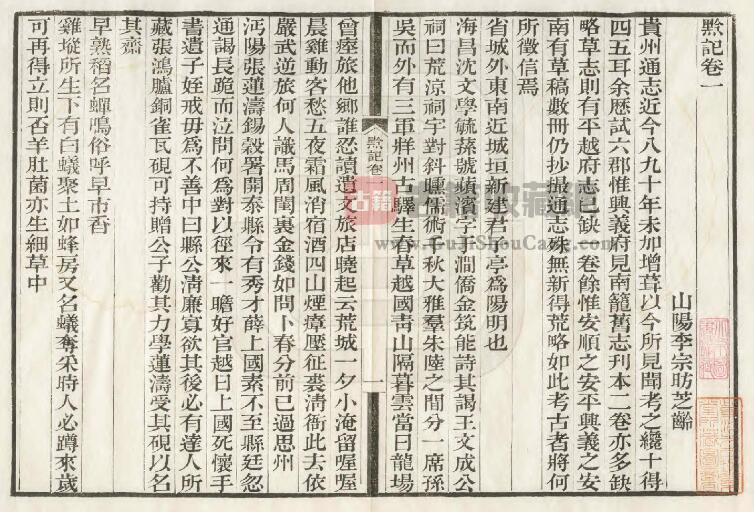 黔記卷一
山陽李宗昉芝齡
貴州通志近今八九十年未加增葺以今所見聞考之纔十得
四五耳余歷試六郡惟興義府見南籠舊志刊本二卷亦多缺
略草志則有平越府志已缺一卷餘惟安順之安平興義之安
南有草稿數冊仍抄撮通志殊無新得荒略如此考古者將何
所徵信焉
省城外東南近城垣新建君子亭為陽明也
海昌沈文學毓蓀號蘋濱字于澗僑金筑能詩其謁王文成公
祠曰荒涼祠宇對斜曛儒術千秋大雅羣朱陸之間分一席孫
吳而外有三軍牂州古驛生春草越國青山隔暮雲當日龍場
黔記卷一
一
曾瘞旅他鄉誰忍讀遺文旅店曉起云荒城一夕小淹留喔喔
晨雞動客愁五夜霜風消宿酒四山煙瘴壓征裘清銜此去依
嚴武逆旅何人識馬周閨裏金錢如問卜春分前已過思州
沔陽張蓮濤錫穀署開泰縣令有秀才薛上國素不至縣廷忽
通謁長跪而泣問何為對以徑來一瞻好官越日上國死懷手
書遺子姪戒毋為不善中曰縣公清廉寡欲其後必有達人所
藏張鴻臚銅雀瓦硯可持贈公子勸其力學蓮濤受其硯以名
其齋
早熟稻名蟬鳴俗呼早市香
雞㙡所生下有白蟻聚土如蜂房又名蟻奪采時人必蹲來歲
可再得立則否羊肚菌亦生細草中
古籍收藏網
www.GuJiShouCang.com